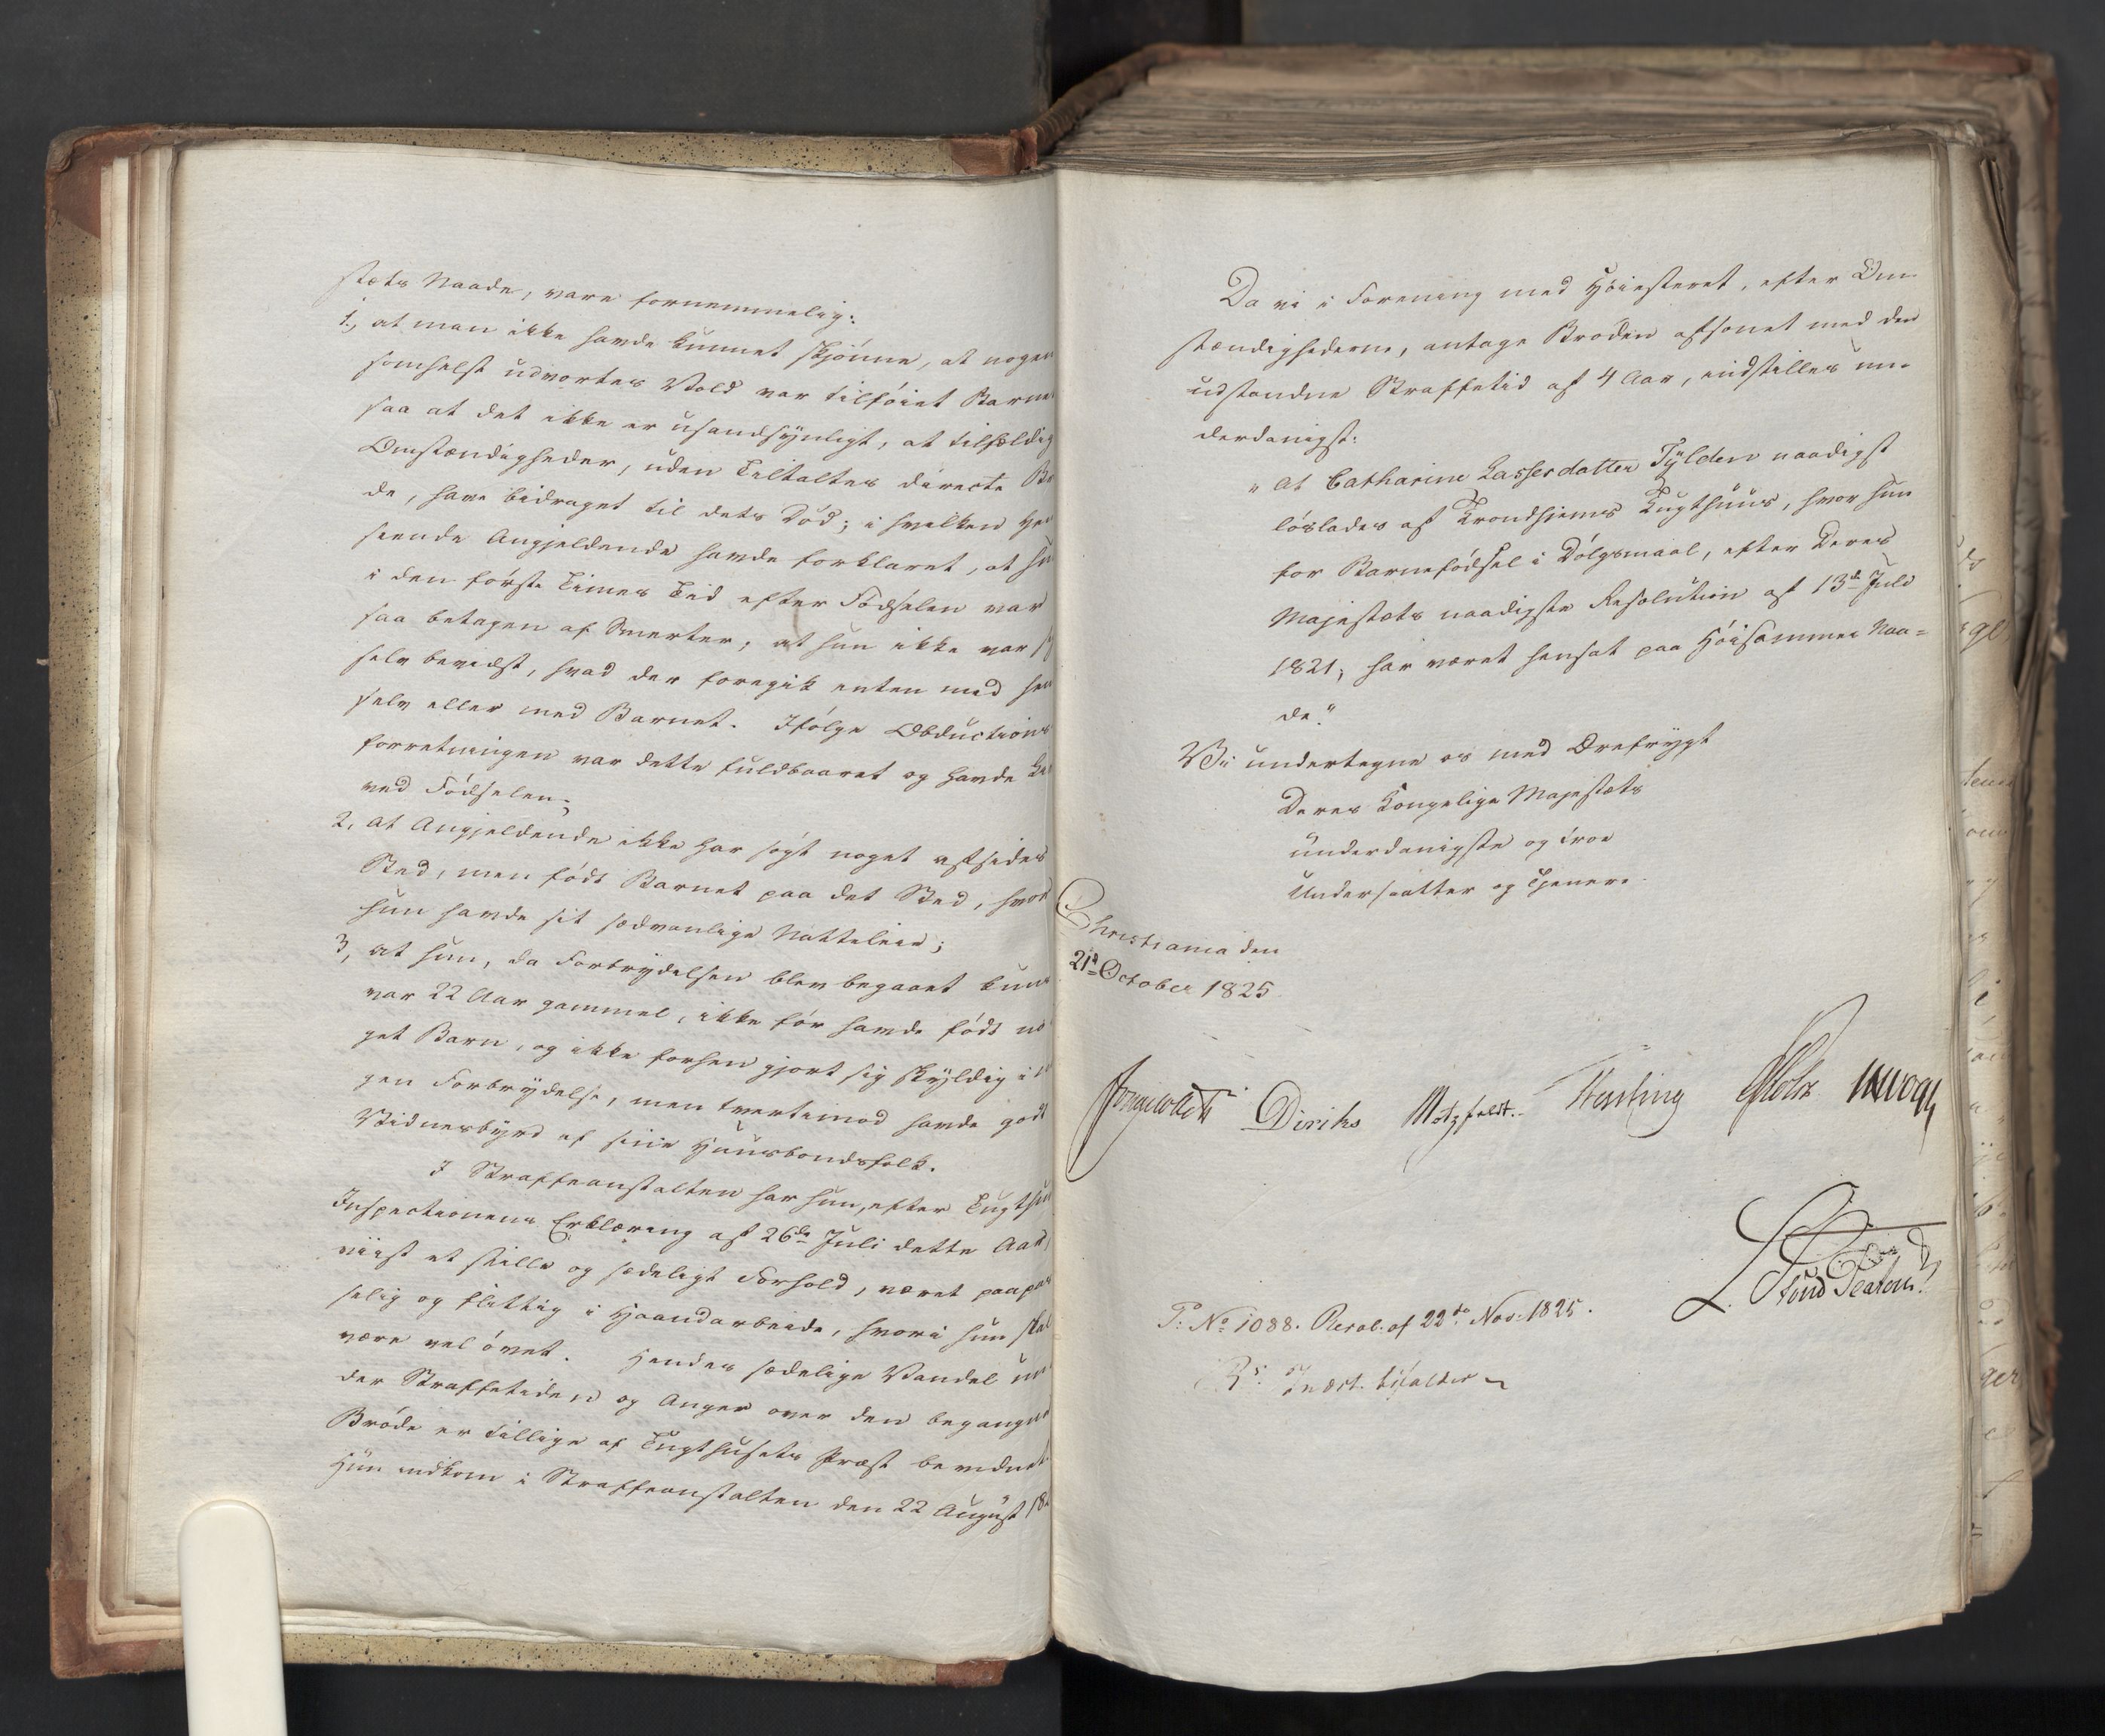 stets Naade, vare fornemmelig:
1., at man ikke havde kunnet skjønne, at nogen
somhelst udvortes Vold var tilføiet Barne
saa at det ikke er usandsynligt, at tilfældig
Omstændigheder, uden Tiltaltes directe Brø
de, have bidraget til dets Død; i hvilken Hen
seende Angjeldende havde forklaret, at hun
i den første Times Tid efter Fødselen var
saa betagen af Smerter, at hun ikke var sig
selv bevidst, hvad der foregik enten med hen
selv eller med Barnet. Ifølge Obductions
forretningen var dette fuldbaaret og havde
ved Fødselen;
2, at Angjeldende ikke har søgt noget afsides
Sted, men født Barnet paa det Sted, hvor
hun havde sit sædvanlige Natteleie;
3, at hun, da Forbrydelsen blev begaaet kun
var 22 Aar gammel, ikke før havde født no
get Barn, og ikke forhen gjort sig skyldig i no
gen Forbrydelse, men tvertimod havde godt
Vidnesbyrd af sine Huusbondsfolk.
I Straffeanstalten har hun, efter Tugthuus
Inspectionens Erklæring af 26de Juli dette Aar,
viist et stille og sædeligt Forhold, været paapas
selig og flittig i Haandarbeide, hvori hun skal
være vel øvet. Hendes sædelige Vandel un
der Straffetiden og Anger over den begangne
Brøde er tillige af Tugthusets Præst bevidnet.
Hun indkom i Straffeanstalten den 22 August 182
Da vi i Forening med Høiesteret, efter Om-
stændighederne, antage Brøden afsonet med den
udstandne Straffetid af 4 Aar, indstilles un-
derdanigst:
"At Catharine Lassesdatter Tylden naadigst
løslades af Trondhjems Tugthuus, hvor hun
for Barnefødsel i Dølgsmaal, efter Deres
Majestæts naadigste Resolution af 13de Juli
1821, har været hensat paa Høisammes Naa=
de."
Vi undertegne os med Ærefrygt
Deres Kongelige Majestæts
underdanigste og troe
Undersaatter og Tjenere.
Christiania den
21d October 1825.
Diriks Motzfeldt. Fasting Holst
P: No 1088. Resol: af 22de Nov: 1825.
Indst. bifaldes